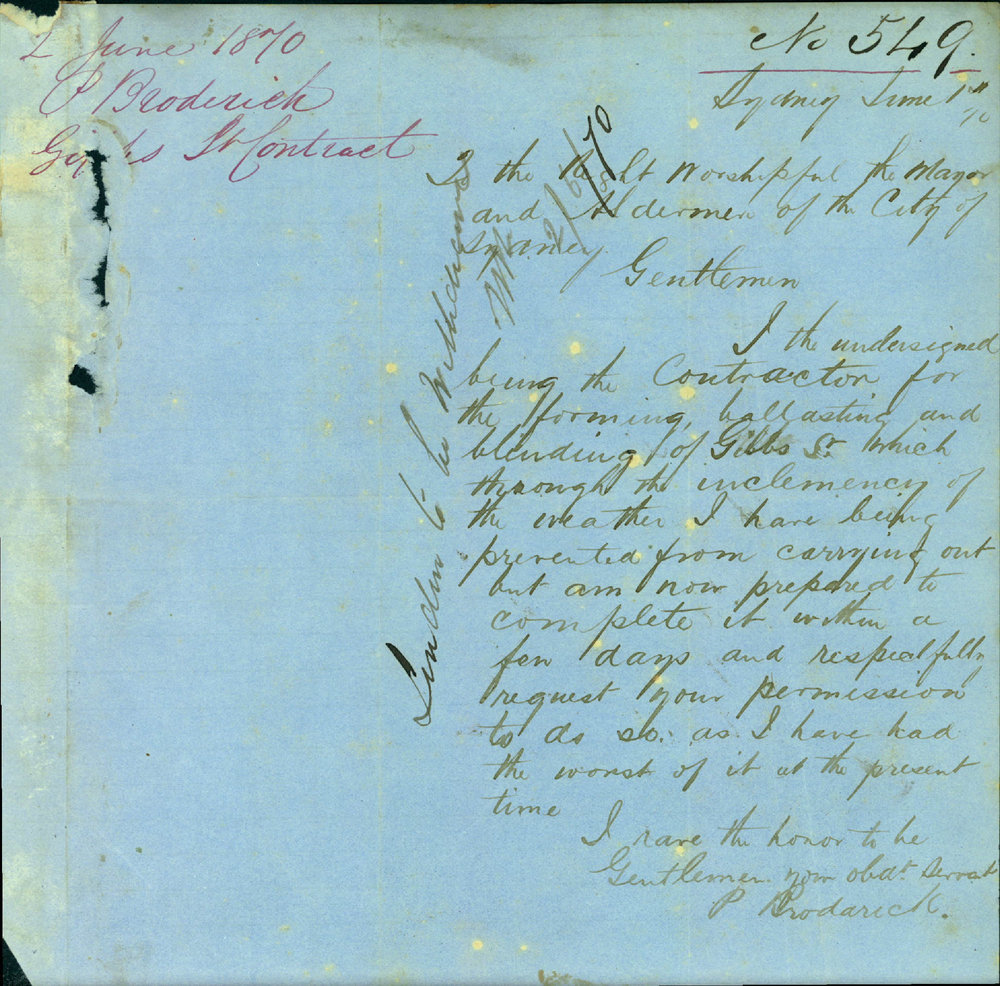 2 June 1870
P Broderick
Gibbs St Contract
No 549.
Sydney June 1st
/70
To the Right Worshipful the Mayor
and Aldermen of the City of
Sydney.
Gentlemen
I the undersigned
being the Contractor for
the forming, ballasting and
blinding of Gibbs St. which
through the inclemency of
the weather I have being
prevented from carrying out
but am now prepared to
complete it within a
few days and respectfully
request your permission
to do so. as I have had
the worst of it at the present
time
I have the honor to be
Gentlemen your obdt. Servant
P Brodarick.
to be withdrawn
2/6/70